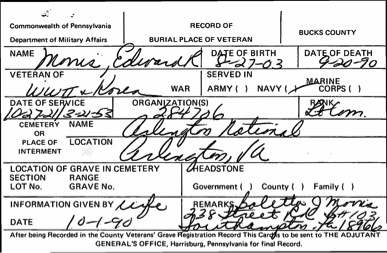 Commonwealth of Pennsylvania RECORD OF BUCKS COUNTY
Department of Military Affairs BURIAL PLACE OF VETERAN
NAME Morris, Edward R DATE OF BIRTH 8-27-03 DATE OF DEATH 9-20-90
VETERAN OF WWII & Korea WAR SERVED IN ARMY ( ) NAVY ( ) MARINE CORPS ( )
DATE OF SERVICE 10-27-21/3-21-53 ORGANIZATION(S) 284726 RANK Lt Com.
CEMETERY OR PLACE OF INTERMENT NAME Arlington National
LOCATION Arlington, VA
LOCATION OF GRAVE IN CEMETERY HEADSTONE
SECTION RANGE
LOT No. GRAVE No. Government ( ) County ( ) Family ( )
INFORMATION GIVEN BY wife REMARKS J Morris
DATE 10-1-90 238 Street Rd #103,
Southampton, Pa 18966
After being Recorded in the County Veterans' Grave Registration Record This Card is to be sent to THE ADJUTANT
GENERAL'S OFFICE, Harrisburg, Pennsylvania for final Record.